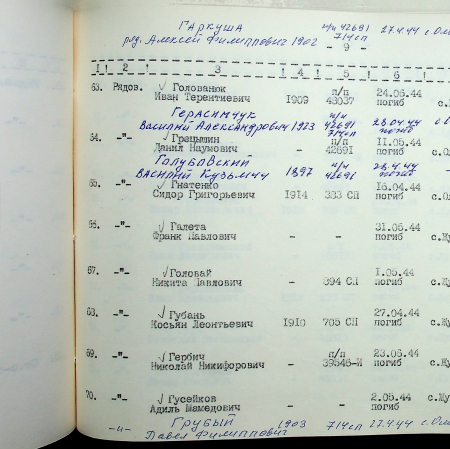 Гаркуша п/п 42691 27.4.44 с.Ол
ряд. Алексей Филиппович 1902 714сп
- 9 -
1 2 3 4 5 6
63. Рядов. Голованюк п/п 24.06.44
Иван Терентиевич 1909 48037 погиб с.
Герасимчук п/п
Василий Александрович 1923 42691 28.04.44
714сп погиб
64. -"- Грацылин п/п 11.05.44
Данил Наумович - 42691 погиб
Голубовский п/п 28.4.44
Василий Кузьмич 1897 42691 погиб
65. -"- Гнатенко 16.04.44
Сидор Григорьевич 1914 383 СП погиб с.О
66. -"- Галета 31.05.44
Франк Павлович - - погиб с.Жу
67. -"- Головай 1.05.44
Никита Павлович - 894 СП погиб с.Жу
68. -"- Губань 27.04.44
Косьян Леонтьевич 1910 705 СП погиб с.Жу
69. -"- Гербич п/п 23.06.44
Николай Никифорович - 39546-И погиб с.Жу
70. -"- Гусейков 2.05.44
Адиль Мамедович - - погиб с.Жу
-"- Грубый 1903 714сп 27.4.44 с.Ол
Павел Филиппович